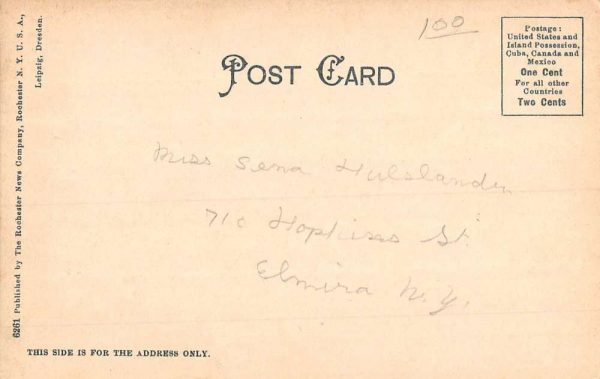 1.00
Postage:
United States and
Island Possession,
Cuba, Canada and
Mexico
One Cent
For all other
Countries
Two Cents
POST CARD
Miss Sena Hulslander
710 Hopkins St.
Elmira N.Y.
6261 Published by The Rochester News Company, Rochester N. Y. U. S. A.,
Leipzig, Dresden.
THIS SIDE IS FOR THE ADDRESS ONLY.